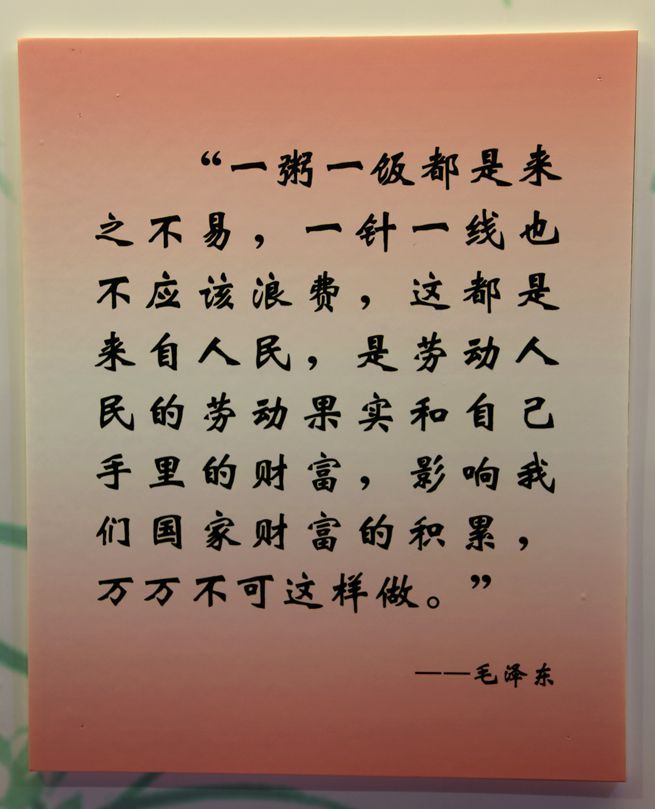 “一粥一饭都是来
之不易，一针一线也
不应该浪费，这都是
来自人民，是劳动人
民的劳动果实和自己
手里的财富，影响我
们国家财富的积累，
万万不可这样做。”
——毛泽东